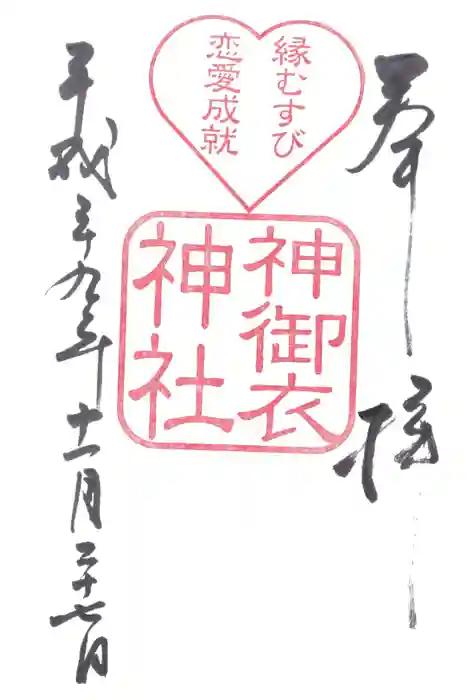 奉拝
縁むすび
恋愛成就
神御衣
神社
平成二十九年十一月二十七日